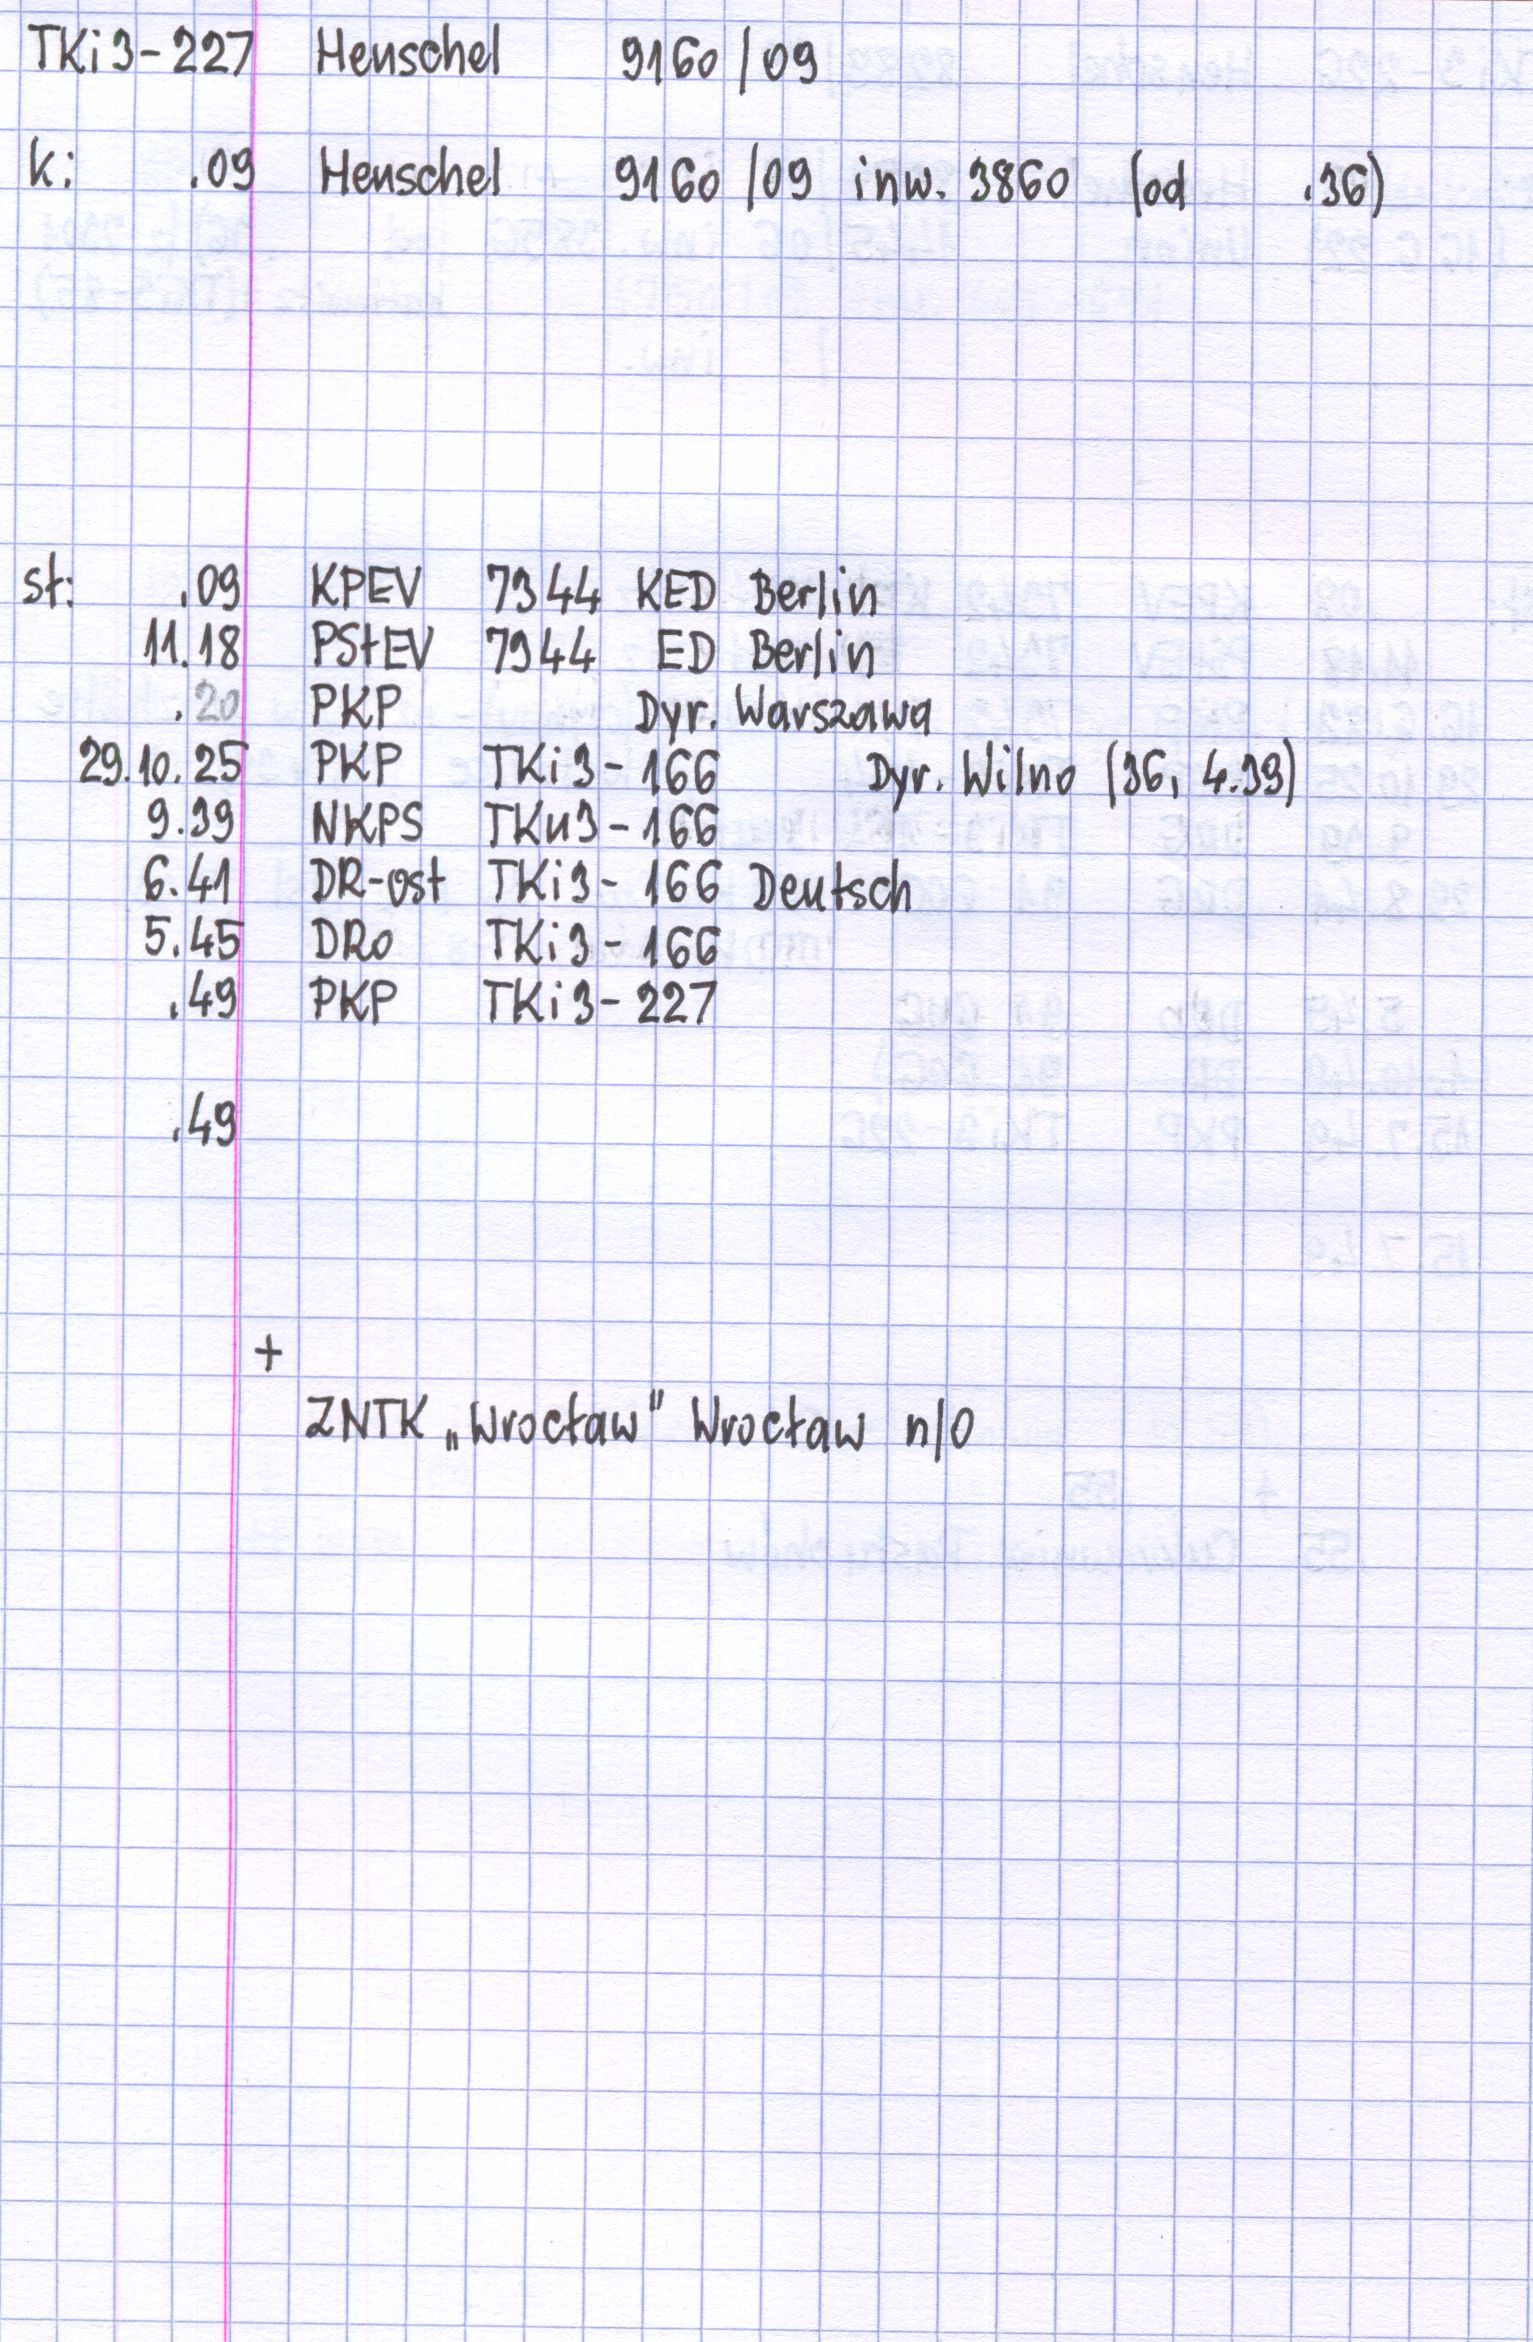 TKi3-227 Henschel 9160/09
k: .09 Henschel 9160/09 inw. 3860 (od .36)
st: .09 KPEV 7344 KED Berlin
11.18 PStEV 7344 ED Berlin
.20 PKP Dyr. Warszawa
29.10.25 PKP TKi3-166 Dyr. Wilno (36, 4.39)
9.39 NKPS TKu3-166
6.41 DR-ost TKi3-166 Deutsch
5.45 DRo TKi3-166
.49 PKP TKi3-227
.49
+
ZNTK „Wrocław” Wrocław n/O